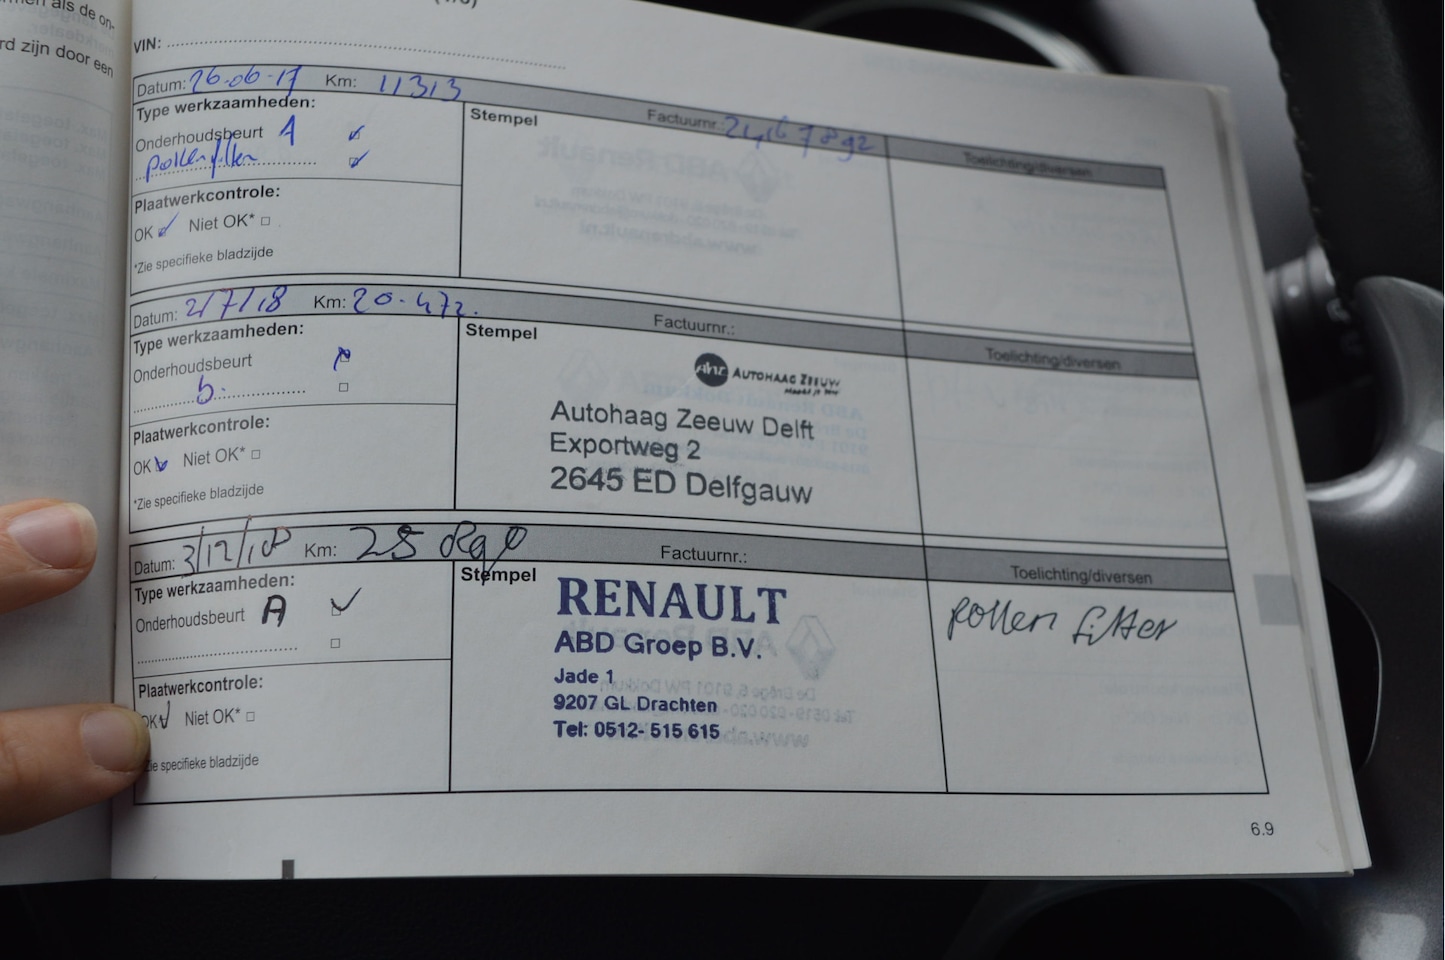 als de on-
rd zijn door een
VIN:
Datum: 26-06-17 Km: 11313 Factuurnr.:
Type werkzaamheden:
Stempel
Toelichting/diversen
Onderhoudsbeurt A
pollenfilter
Plaatwerkcontrole:
OK Niet OK*
*Zie specifieke bladzijde
Datum: 2/7/18 Km: 20.472. Factuurnr.:
Type werkzaamheden:
Stempel
Toelichting/diversen
Onderhoudsbeurt
b.
Plaatwerkcontrole:
OK Niet OK*
*Zie specifieke bladzijde
ahz AUTOHAAG ZEEUW
Autohaag Zeeuw Delft
Exportweg 2
2645 ED Delfgauw
Datum: 3/12/18 Km: Factuurnr.:
Type werkzaamheden:
Stempel
Toelichting/diversen
Onderhoudsbeurt A
Plaatwerkcontrole:
OK Niet OK*
Zie specifieke bladzijde
RENAULT
ABD Groep B.V.
Jade 1
9207 GL Drachten
Tel: 0512- 515 615
pollen filter
6.9